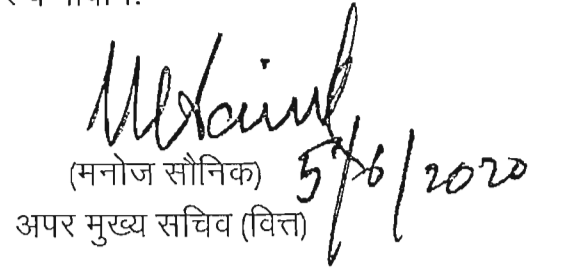 (मनोज सौनिक) 5/6/2020
अपर मुख्य सचिव (वित्त)